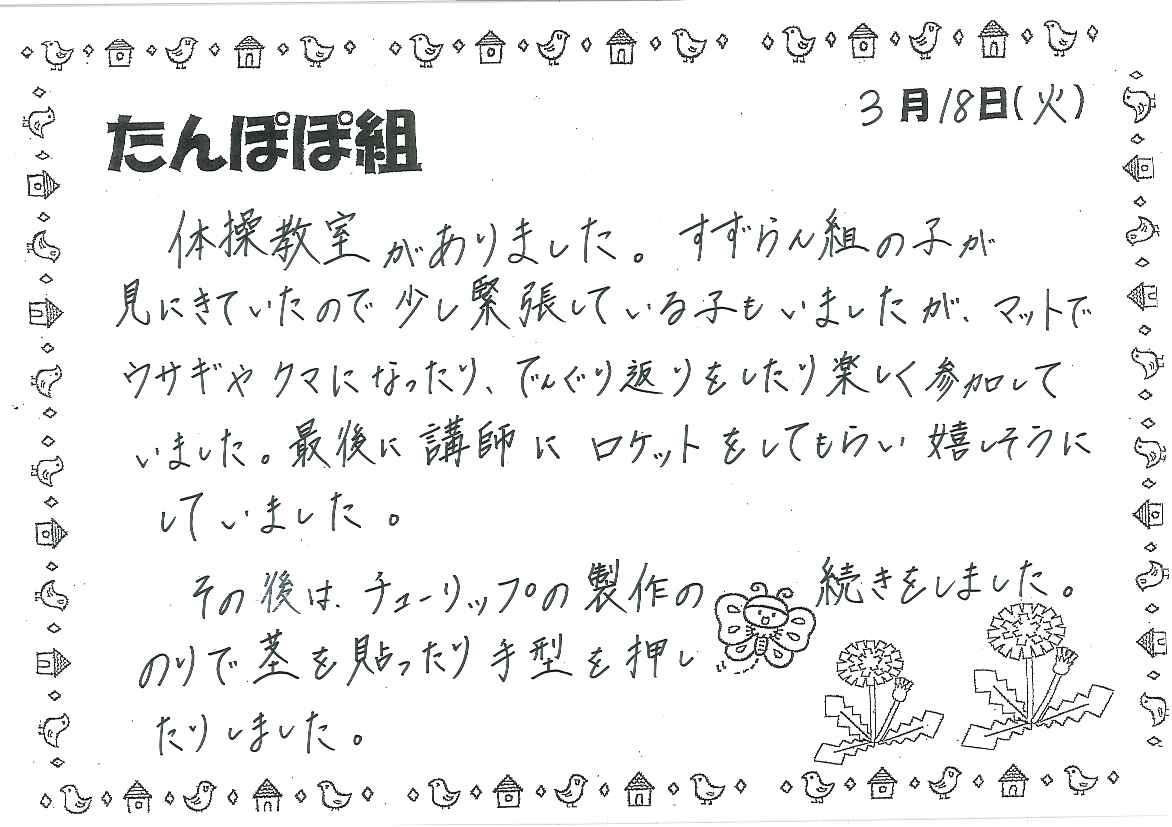 3月18日(火)
たんぽぽ組
体操教室がありました。すずらん組の子が
見にきていたので少し緊張している子もいましたが、マットで
ウサギやクマになったり、でんぐり返りをしたり楽しく参加して
いました。最後に講師にロケットをしてもらい嬉しそうに
していました。
その後は、チューリップの製作の続きをしました。
のりで茎を貼ったり手型を押し
たりしました。